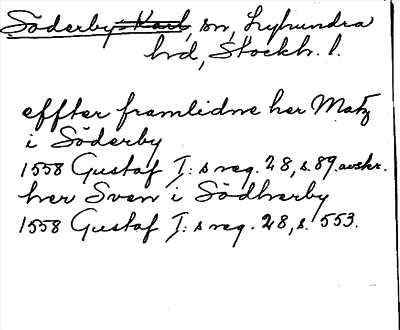 Söderby-Karl, sn, Lyhundra
hd, Stockh. l.
effter framlidne her Matz
i Söderby
1558 Gustaf I:s reg. 28, s. 89. avskr.
her Sven i Södherby
1558 Gustaf I:s reg. 28, s. 553.